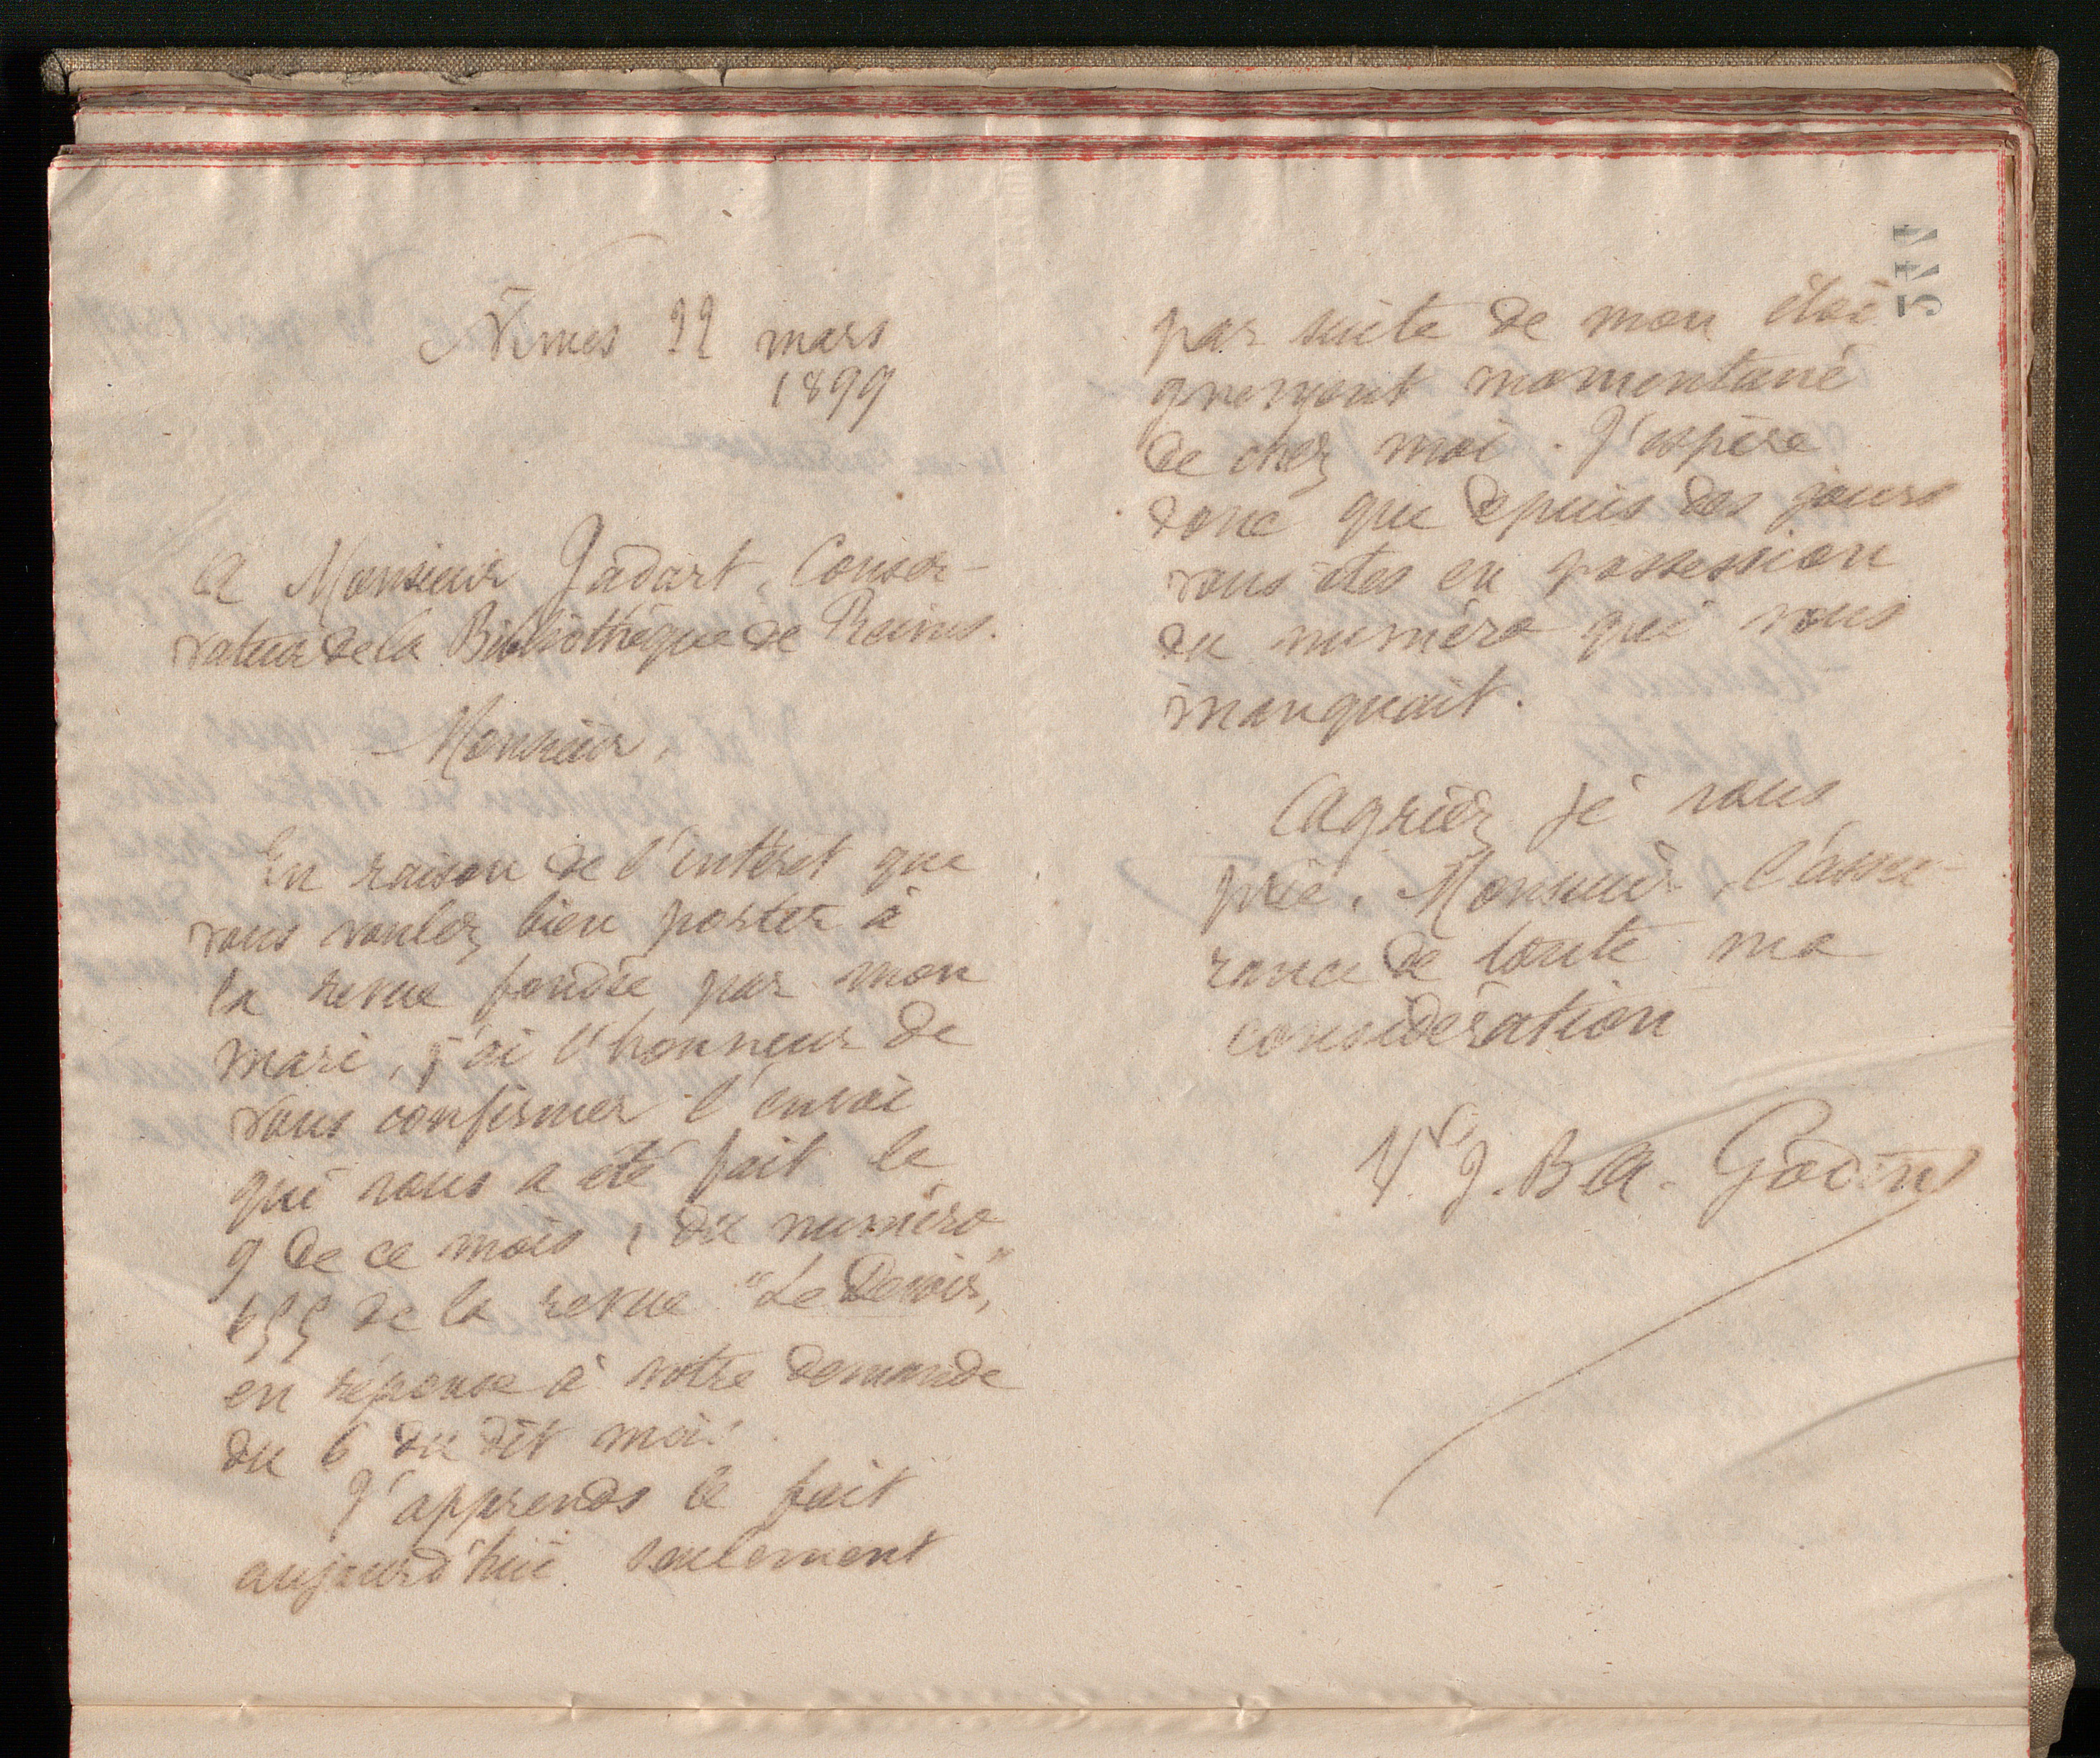 Nîmes 22 mars
1899
A Monsieur Jadart, Conser-
vateur de la Bibliothèque de Reims.
Monsieur,
En raison de l'intérêt que
vous voulez bien porter à
la revue fondée par mon
mari, j'ai l'honneur de
vous confirmer l'envoi
qui vous a été fait le
9 de ce mois, du numéro
655 de la revue "Le Devoir",
en réponse à votre demande
du 6 du dit mois.
J'apprends le fait
aujourd'hui seulement
par suite de mon éloi
gnement momentané
de chez moi. J'espère
donc que depuis des jours
vous êtes en possession
du numéro qui vous
manquait.
Agréez je vous
prie, Monsieur, l'assu-
rance de toute ma
considération
Vve J. B. A. Godin